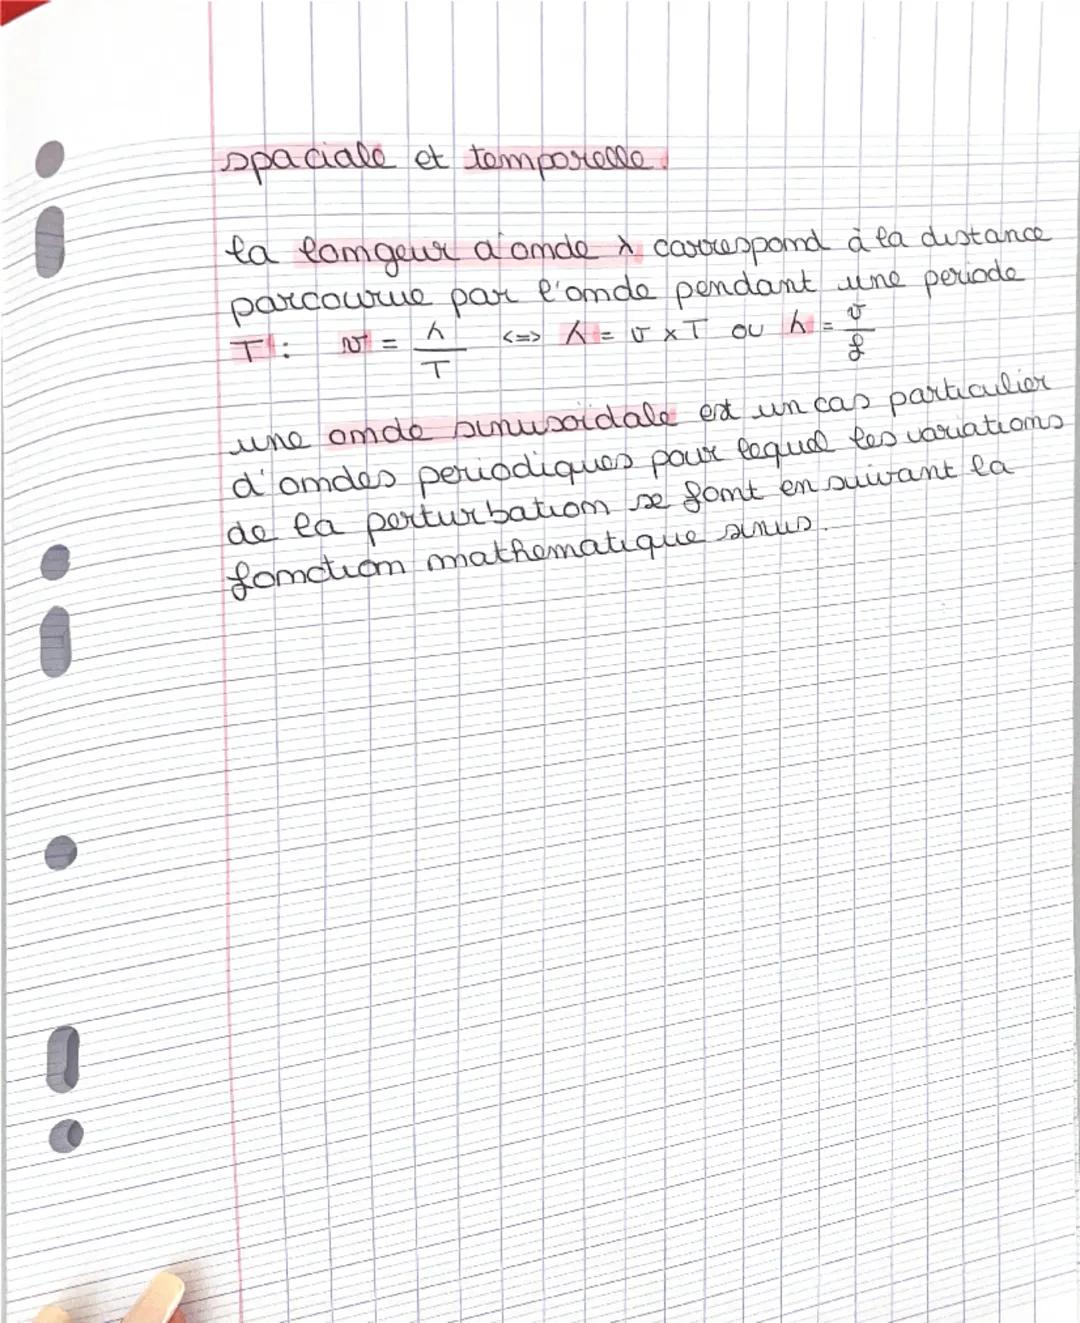 spaciale et temporelle.
la longeur d'onde λ correspond à la distance
parcourue par l'onde pendant une periode
T : v = λ/T <=> λ = v x T ou λ = v/f
une onde sinusoïdale est un cas particulier
d'ondes periodiques pour lequel les variations
de la perturbation se font en suivant la
fonction mathematique sinus.